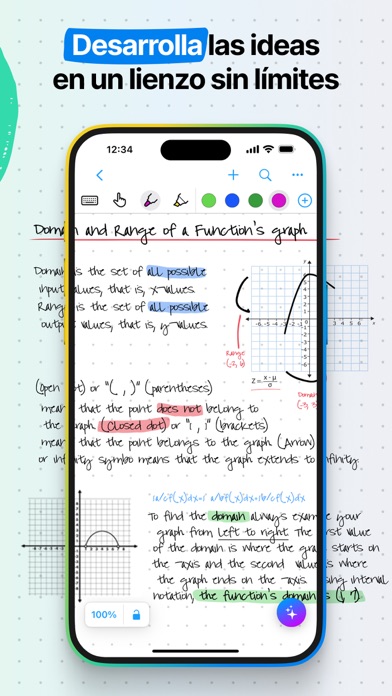 Desarrolla las ideas
en un lienzo sin límites
12:34
Domain and Range of a Function's graph
Domain is the set of all possible
input values, that is, x-values.
Range is the set of all possible
output values, that is, y-values.
y
-6 -5 -4 -3 -2 -1
Range
Z = x - μ / σ
Domain
(Open dot) or "( , )" (parentheses)
mean that the point does not belong to
the graph. (Closed dot) or "[ , ]" (brackets)
mean that the point belongs to the graph (Arrow)
or infinity symbo means that the graph extends to infinity
To find the domain always examine your
graph from Left to right The first value
of the domain is where the graph starts on
the axis and the second value is where
the graph ends on the axis using interval
notation, the function's domain is
100%